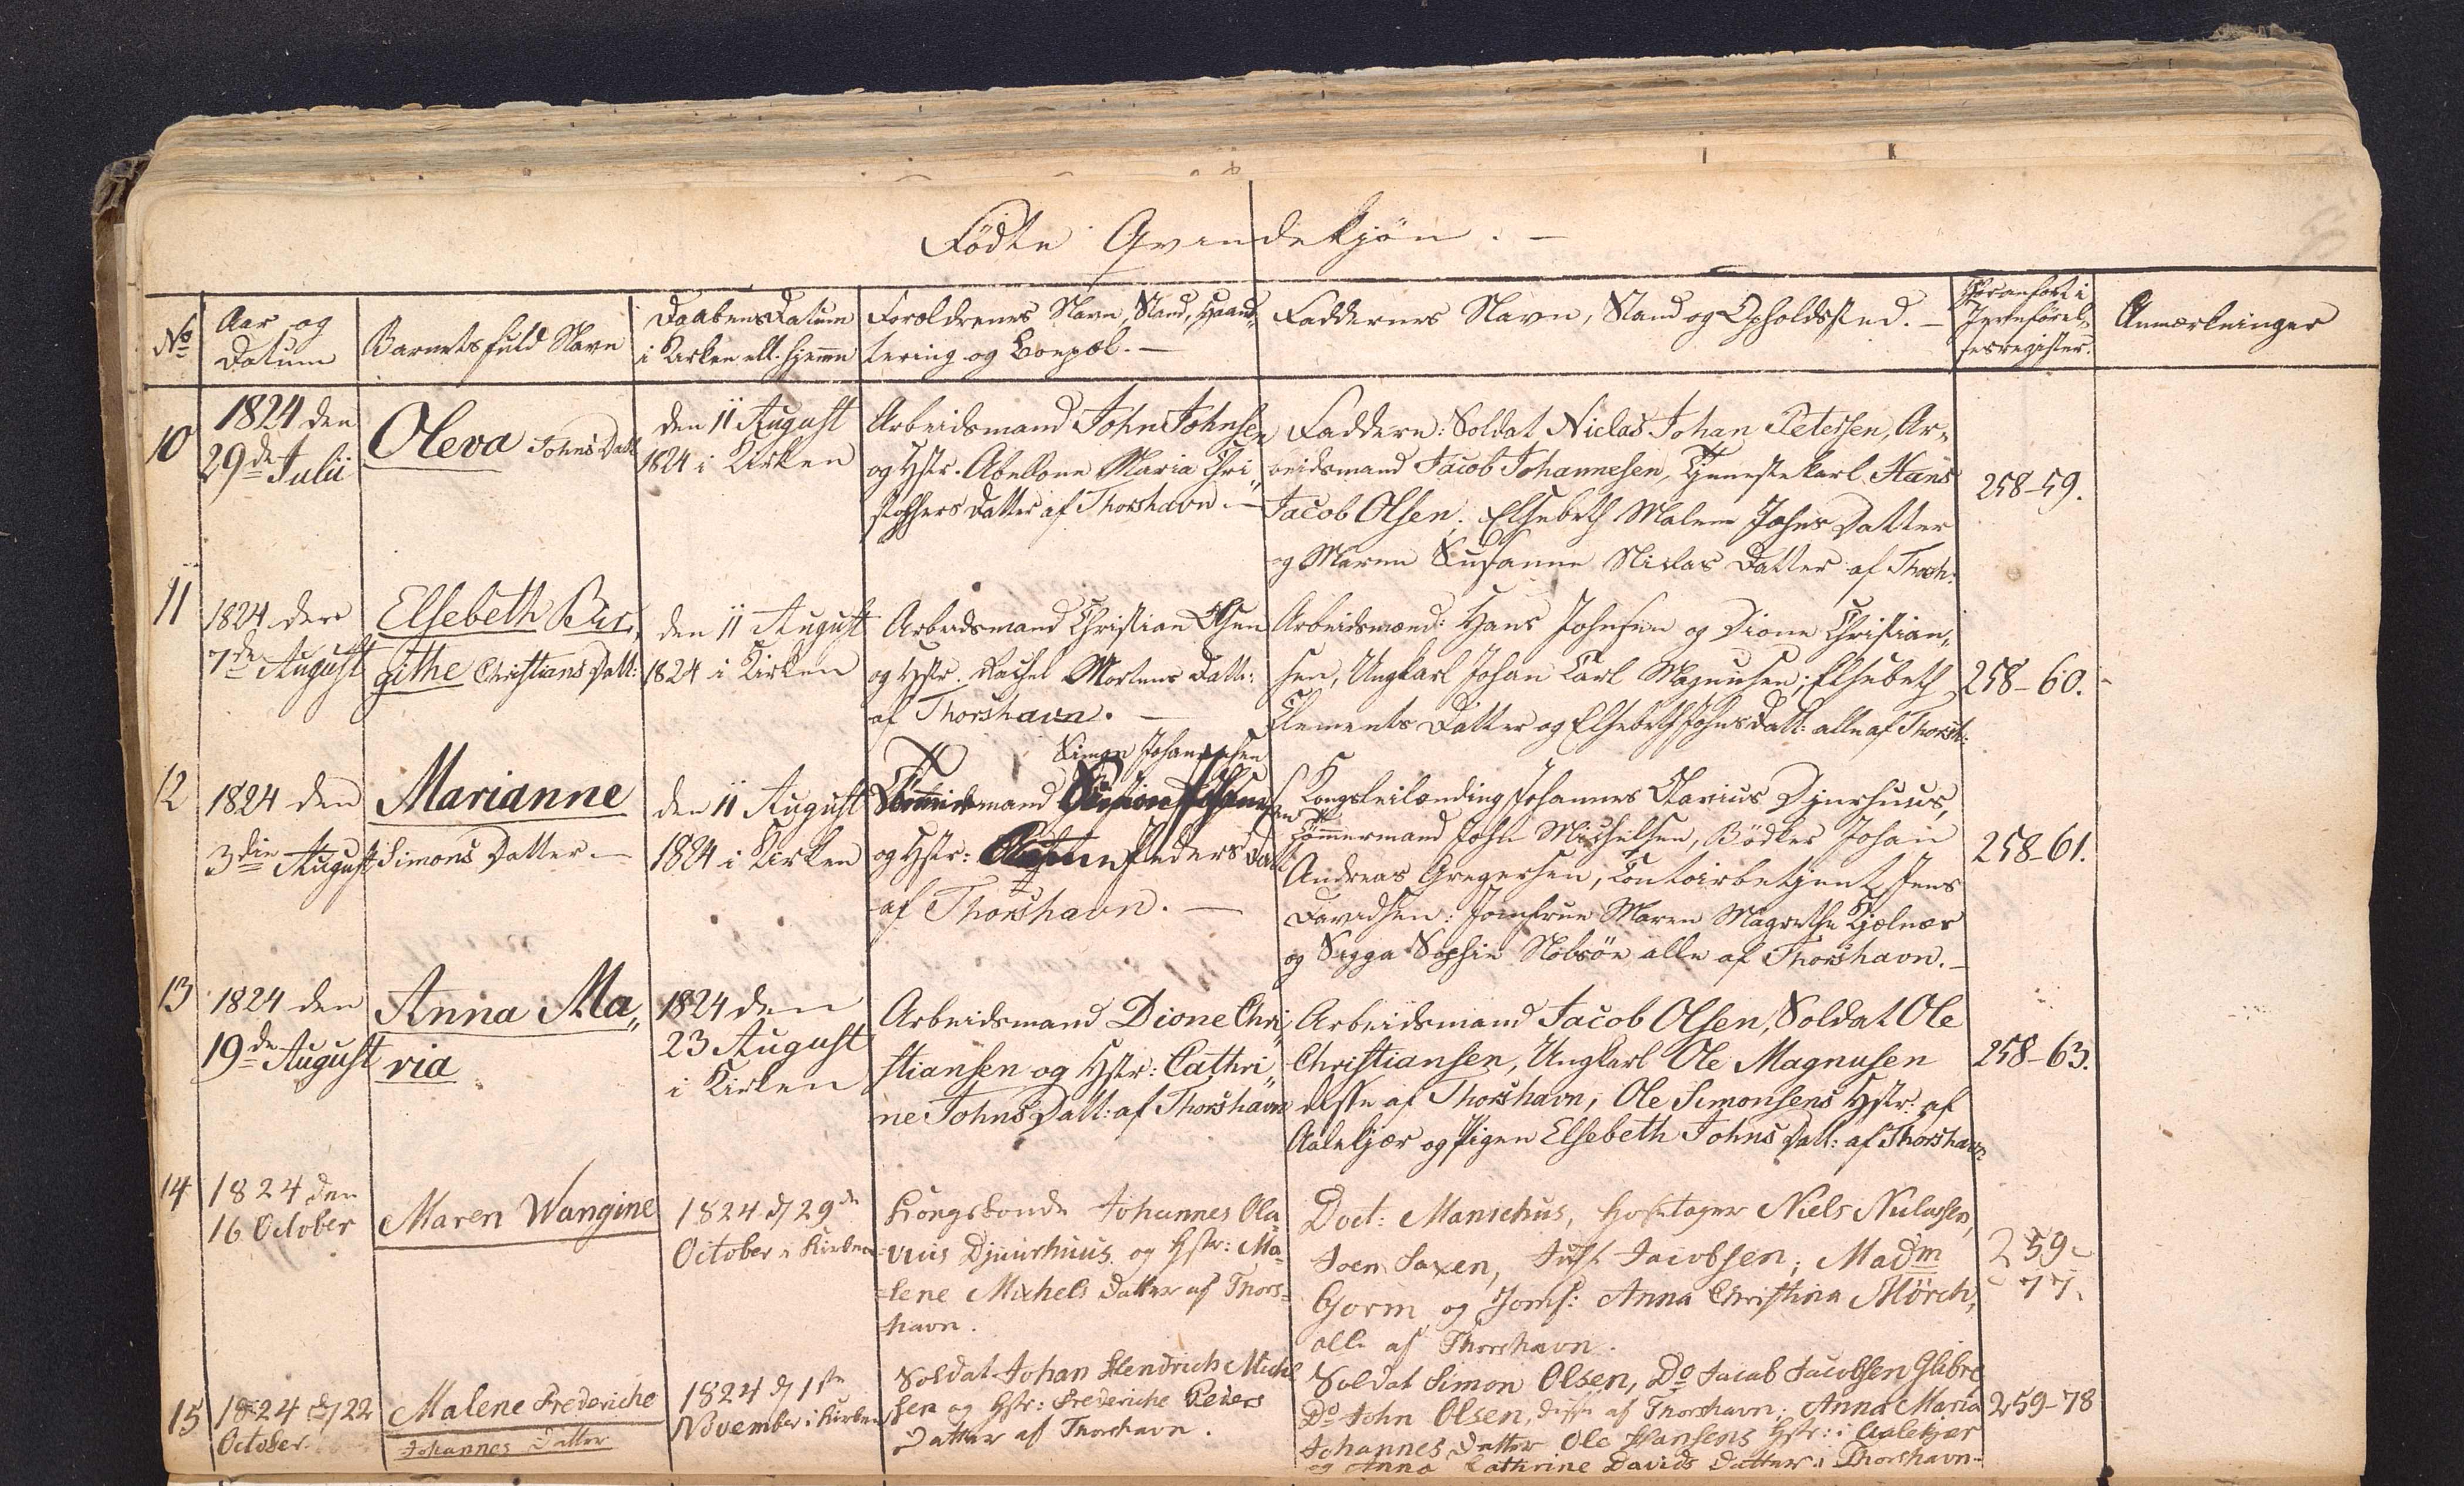 Fødte Qvindekjøn. —
No
Aar og
Datum
Barnets fuld Navn
Daabens Datum
i Kirken ell. hjemme
Forældrenes Navn, Stand, Haand„
tering og Boepæl. —
Faddernes Navn, Stand og Opholdssted. —
Hvor anført i
Jevnførel„
sesregister.
Anmærkninger
10
1824 den
29de Julii
Oleva Johns Datt
den 11 August
1824 i Kirken
Arbeidsmand John Johnsen
og Hstr. Abelone Maria Chri„
stophers Datter af Thorshavn. —
Faddere: Soldat Niclas Johan Petersen, Ar„
beidsmand Jacob Johannesen, Tjenestekarl Hans
Jacob Olsen; Elsebeth Malene Johns Datter
og Maren Susanne Niclas Datter af Thorsh:
258-59.
11
1824 den
7de August
Elsebeth Bir„
githe Christians Datt:
den 11 August
1824 i Kirken
Arbeidsmand Christian Olsen
og Hstr. Rachel Mortens Datte:
af Thorshavn. —
Arbeidsmænd: Hans Johnsen og Dione Christian„
sen, Ungkarl Johan Carl Magnusen; Elsebeth
Clements Datter og Elsebeth Johns Datt: alle af Thorsh:
258-60.
12
1824 den
3die August
Marianne
Simons Datter —
den 11 August
1824 i Kirken
Simon Johannesen
Tømmermand
og Hstr: Peders Datt:
af Thorshavn. —
Kongsleilænding Johannes Olavius Djurhuus,
Tømmermand John Michelsen, Bødker Johan
Andreas Gregersen, Contoirbetjent Jens
Davidsen: Jomfrue Maren Magrethe Kjelnes
og Sigga Sophie Nolsøe alle af Thorshavn. —
258-61.
13
1824 den
19de August
Anna Ma„
ria
1824 den
23 August
i Kirken
Arbeidsmand Dione Chri„
stiansen og Hstr: Cathri„
ne Johns Datt: af Thorshavn
Arbeidsmand Jacob Olsen, Soldat Ole
Christiansen, Ungkarl Ole Magnusen
disse af Thorshavn; Ole Simonsens Hstr: af
Aalekjær og Pigen Elsebeth Johns Datt: af Thorshavn
258-63.
14
1824 den
16 October
Maren Wangine
1824 d 29de
October i Kirken
Kongsbonde Johannes Ola=
vius Djuurhuus og Hstr: Ma=
=lene Michels Datter af Thors=
=havn.
Doct: Manichus, Niels Nielassen,
Joen Saxen, Jacobsen; Madm
Gorm og Jomf: Anna Christina Mörch,
alle af Thorshavn.
259-
-77.
15
1824 d 22
October.
Malene Frederiche
Johannes Datter
1824 d 1ste
November i Kirken
Soldat Johan Hendrich Michel
sen og Hstr: Frederiche Peders
Datter af Thorshavn.
Soldat Simon Olsen, Do Jacob Jacobsen Glibre
Do John Olsen, disse af Thorshavn; Anna Maria
Johannes Datter Ole Hansens Hstr: i Aalekjær
og Anna Cathrine Davids Datter i Thorshavn.
259-78